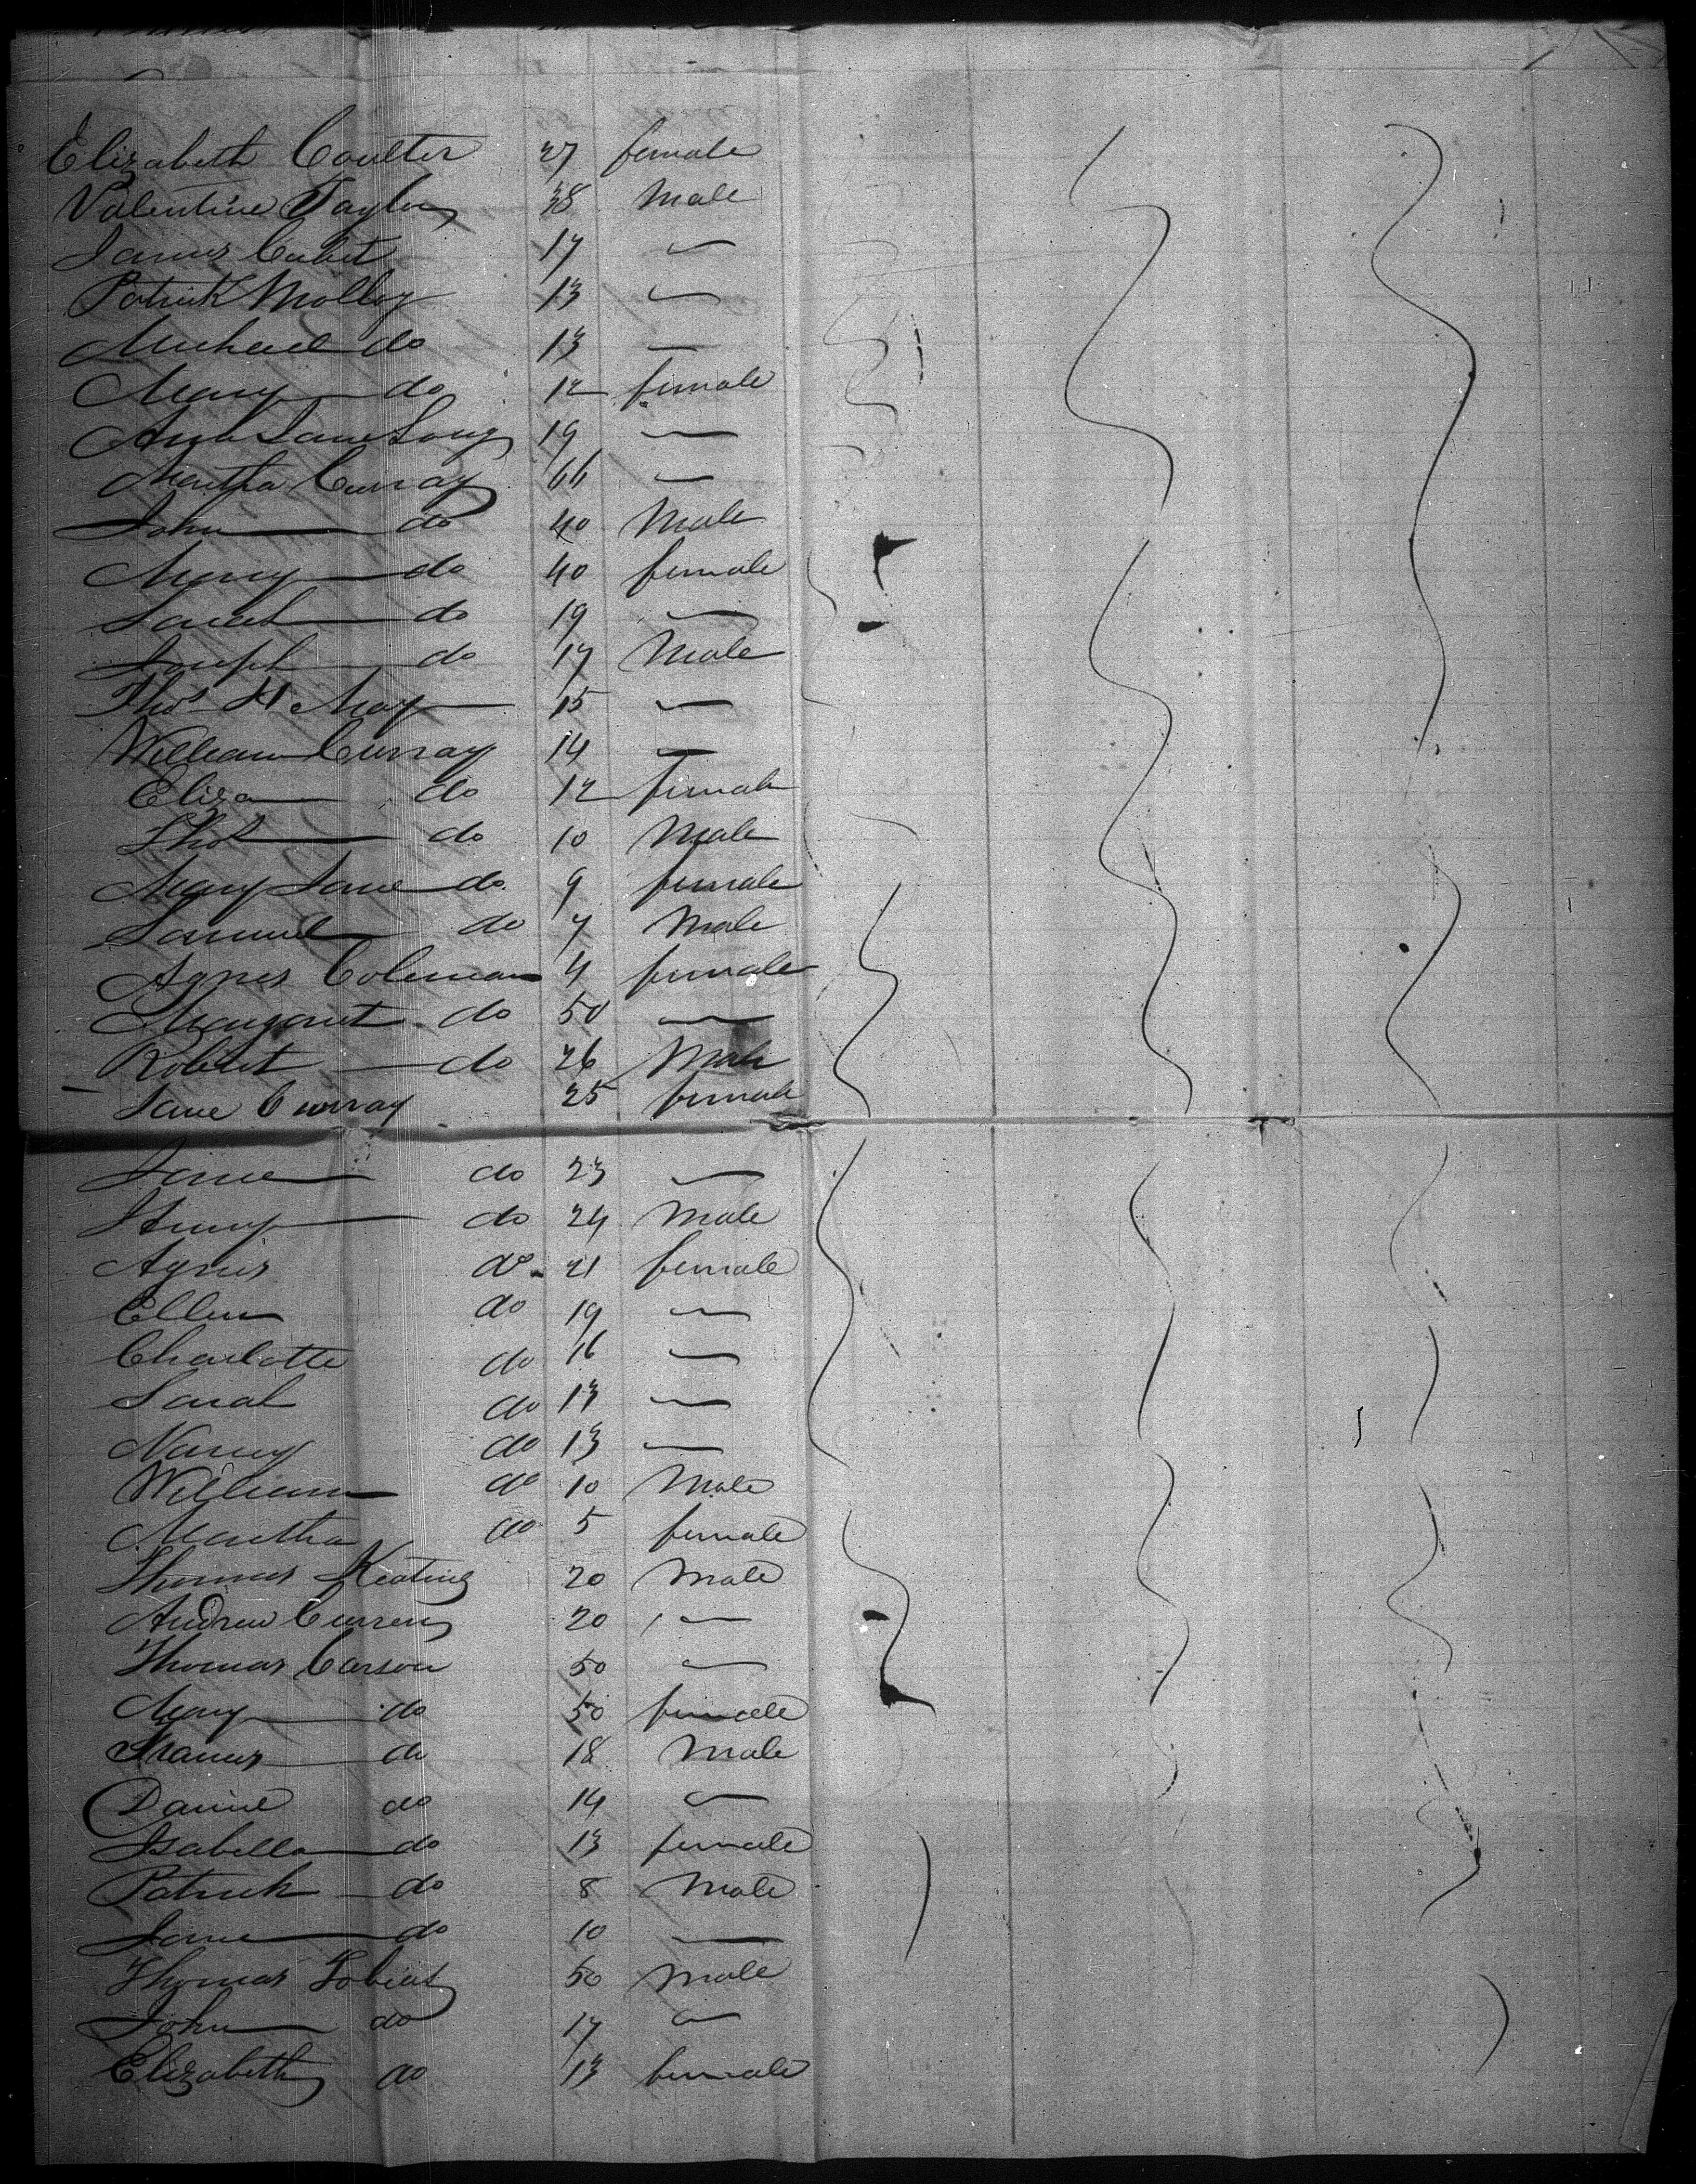 Elizabeth Coulter 27 female
Valentine Taylor 38 Male
James 17 〃
Patrick Molloy 13 〃
Michael do 13 〃
Mary do 12 female
Ann Jane Long 19 〃
Martha Curray 66 〃
John do 40 Male
Mary do 40 female
Sarah do 19 〃
Joseph do 17 Male
Thos H May 15 〃
William Curray 14 〃
Eliza do 12 female
Thos do 10 Male
Mary Jane do 9 female
Samuel do 7 Male
Agnes Coleman 4 female
Margaret do 50 〃
Robert do 26 Male
Jane Curray 25 female
Jane do 23 〃
Henry do 24 Male
Agnes do 21 female
Ellen do 19 〃
Charlotte do 16 〃
Sarah do 13 〃
Nancy do 13 〃
William do 10 Male
Martha do 5 female
Thomas Keating 20 Male
Andrew Curren 20 〃
Thomas Carson 50 〃
Mary do 50 female
Francis do 18 Male
Daniel do 14 〃
Isabella do 13 female
Patrick do 8 Male
Jane do 10 〃
Thomas 50 Male
John do 17 〃
Elizabeth do 13 female